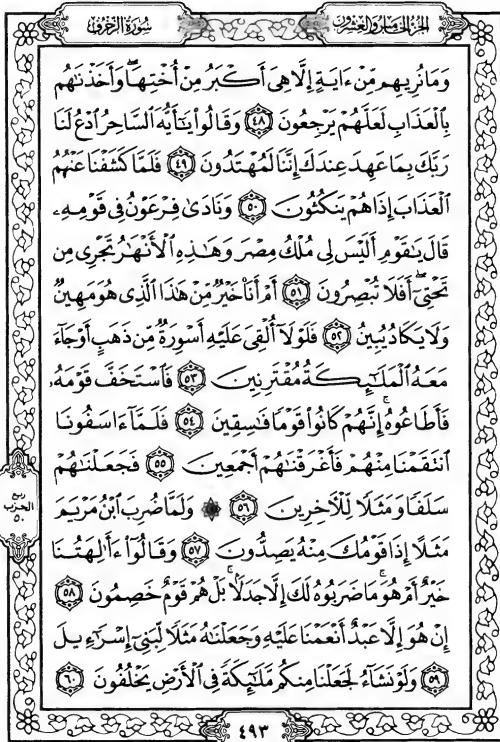 سورة الزخرف
الجزء الخامس والعشرون
وَمَا نُرِيهِم مِّنْ ءَايَةٍ إِلَّا هِىَ أَكْبَرُ مِنْ أُخْتِهَا ۖ وَأَخَذْنَٰهُم
بِالْعَذَابِ لَعَلَّهُمْ يَرْجِعُونَ ٤٨ وَقَالُوا۟ يَٰٓأَيُّهَ السَّاحِرُ ادْعُ لَنَا
رَبَّكَ بِمَا عَهِدَ عِندَكَ إِنَّنَا لَمُهْتَدُونَ ٤٩ فَلَمَّا كَشَفْنَا عَنْهُمُ
الْعَذَابَ إِذَا هُمْ يَنكُثُونَ ٥٠ وَنَادَىٰ فِرْعَوْنُ فِى قَوْمِهِۦ
قَالَ يَٰقَوْمِ أَلَيْسَ لِى مُلْكُ مِصْرَ وَهَٰذِهِ الْأَنْهَٰرُ تَجْرِى مِن
تَحْتِىٓ ۖ أَفَلَا تُبْصِرُونَ ٥١ أَمْ أَنَا۠ خَيْرٌ مِّنْ هَٰذَا الَّذِى هُوَ مَهِينٌ
وَلَا يَكَادُ يُبِينُ ٥٢ فَلَوْلَآ أُلْقِىَ عَلَيْهِ أَسْوِرَةٌ مِّن ذَهَبٍ أَوْ جَآءَ
مَعَهُ الْمَلَٰٓئِكَةُ مُقْتَرِنِينَ ٥٣ فَاسْتَخَفَّ قَوْمَهُۥ
فَأَطَاعُوهُ ۚ إِنَّهُمْ كَانُوا۟ قَوْمًا فَٰسِقِينَ ٥٤ فَلَمَّآ ءَاسَفُونَا
انتَقَمْنَا مِنْهُمْ فَأَغْرَقْنَٰهُمْ أَجْمَعِينَ ٥٥ فَجَعَلْنَٰهُمْ
سَلَفًا وَمَثَلًا لِّلْءَاخِرِينَ ٥٦ ۞ وَلَمَّا ضُرِبَ ابْنُ مَرْيَمَ
مَثَلًا إِذَا قَوْمُكَ مِنْهُ يَصِدُّونَ ٥٧ وَقَالُوٓا۟ ءَأَٰلِهَتُنَا
خَيْرٌ أَمْ هُوَ ۚ مَا ضَرَبُوهُ لَكَ إِلَّا جَدَلًۢا ۚ بَلْ هُمْ قَوْمٌ خَصِمُونَ ٥٨
إِنْ هُوَ إِلَّا عَبْدٌ أَنْعَمْنَا عَلَيْهِ وَجَعَلْنَٰهُ مَثَلًا لِّبَنِىٓ إِسْرَٰٓءِيلَ
٥٩ وَلَوْ نَشَآءُ لَجَعَلْنَا مِنكُم مَّلَٰٓئِكَةً فِى الْأَرْضِ يَخْلُفُونَ ٦٠
ربع
الحزب
٥٠
٤٩٣